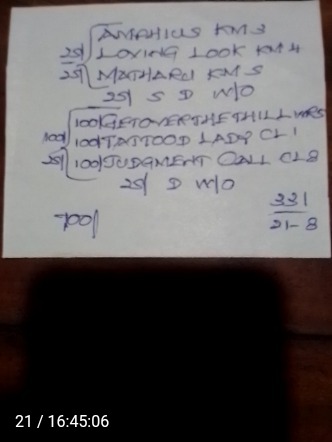 AMAHIUS KM 3
25/ LOVING LOOK KM 4
25/ MATHARU KM 5
25/ S D W/O
100/ GETOVERTHETHILL WRS
100/ 100/ TATTOOD LADY CL 1
25/ 100/ JUDGMENT CALL CL 8
25/ D W/O
331
700/ 21-8
21 / 16:45:06